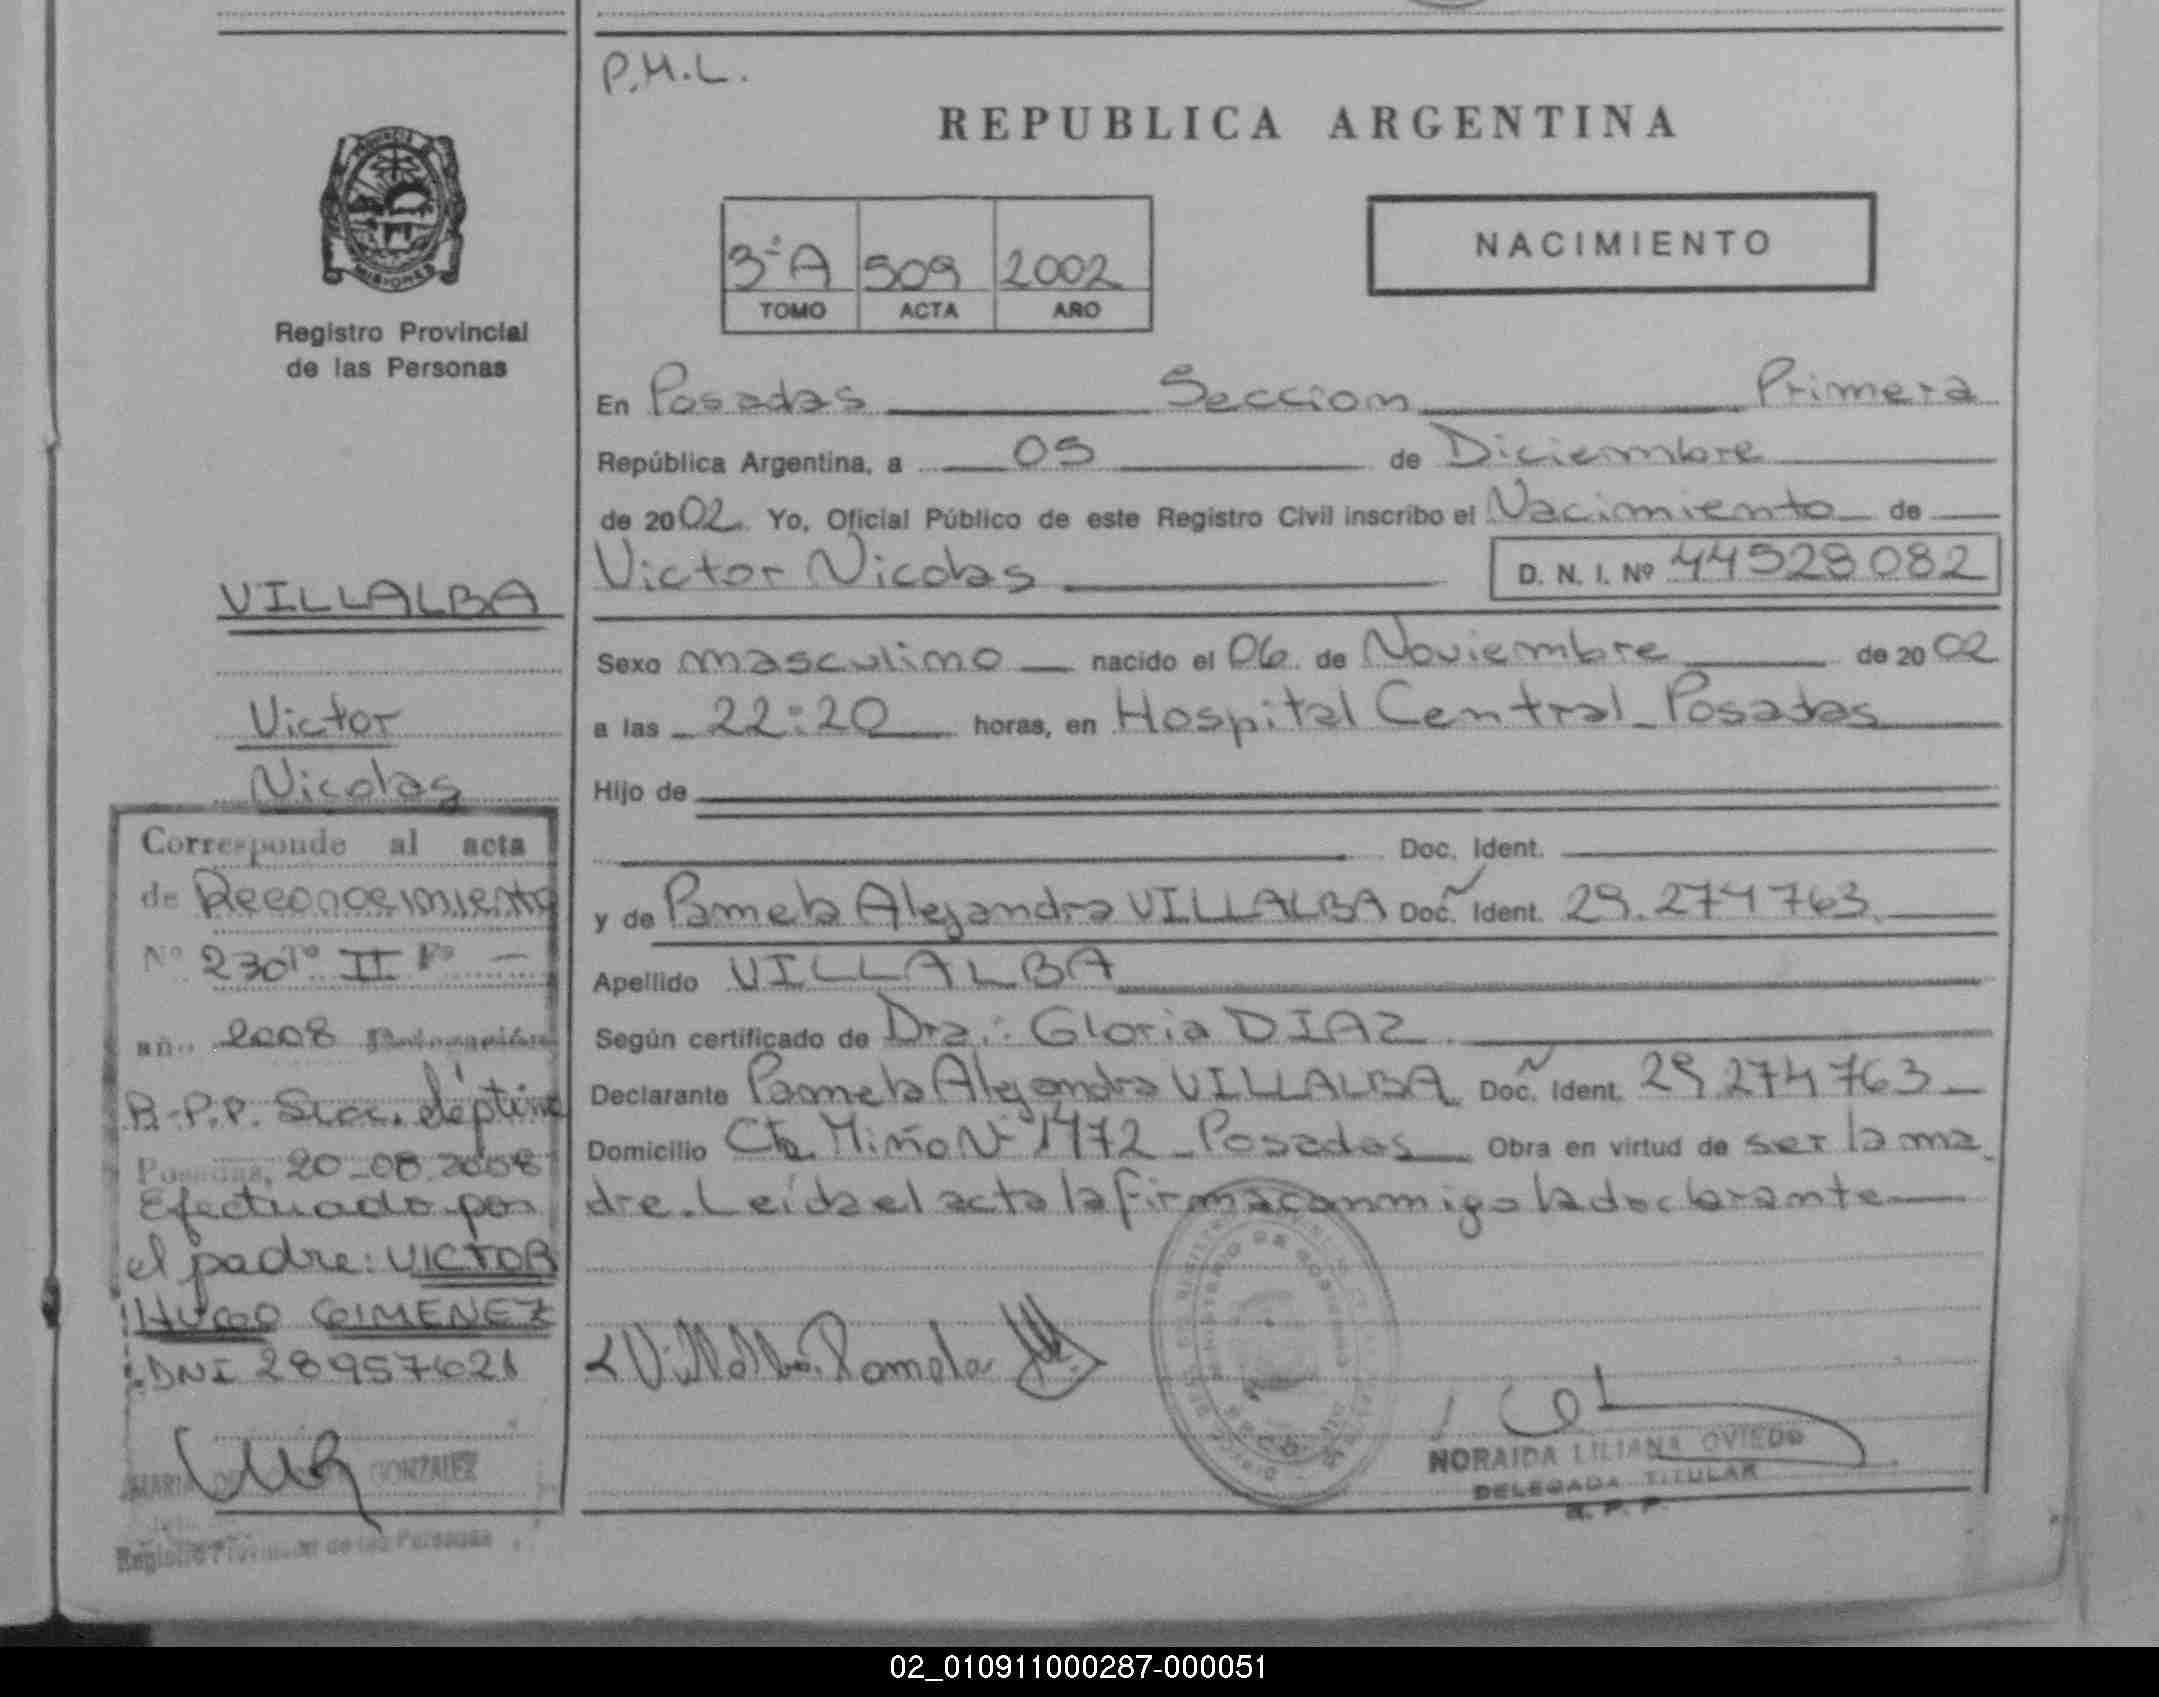 P.M.L.
REPUBLICA ARGENTINA
NACIMIENTO
3ª A 509 2002
TOMO ACTA AÑO
PROVINCIA
MISIONES
Registro Provincial
de las Personas
En Posadas Seccion Primera
República Argentina, a 05 de Diciembre
de 2002. Yo, Oficial Público de este Registro Civil inscribo el Nacimiento de
Victor Nicolas D. N. I. Nº 44529082
Sexo masculino nacido el 06 de Noviembre de 2002
a las 22:20 horas, en Hospital Central Posadas
Hijo de
Doc. Ident.
y de Pamela Alejandra VILLALBA Doc. Ident. 29.274763.
Apellido VILLALBA
Según certificado de Dra.: Gloria DIAZ
Declarante Pamela Alejandra VILLALBA Doc. Ident. 29.274763
Domicilio Cta. Miño Nº 1472 - Posadas Obra en virtud de ser la ma
dre. Leída el acta la firma conmigo la declarante
Villalba Pamela
NORAIDA LILIANA OVIEDO
DELEGADA TITULAR
R. P. P.
VILLALBA
Victor
Nicolas
Corresponde al acta
de Reconocimiento
Nº 230 Tº II Fº -
año 2008
R.P.P. Secc. Séptima
Posadas, 20-08-2008
Efectuado por
el padre: VICTOR
HUGO GIMENEZ
DNI 28957621
MARIA GONZALEZ
Registro Provincial de las Personas
02_010911000287-000051